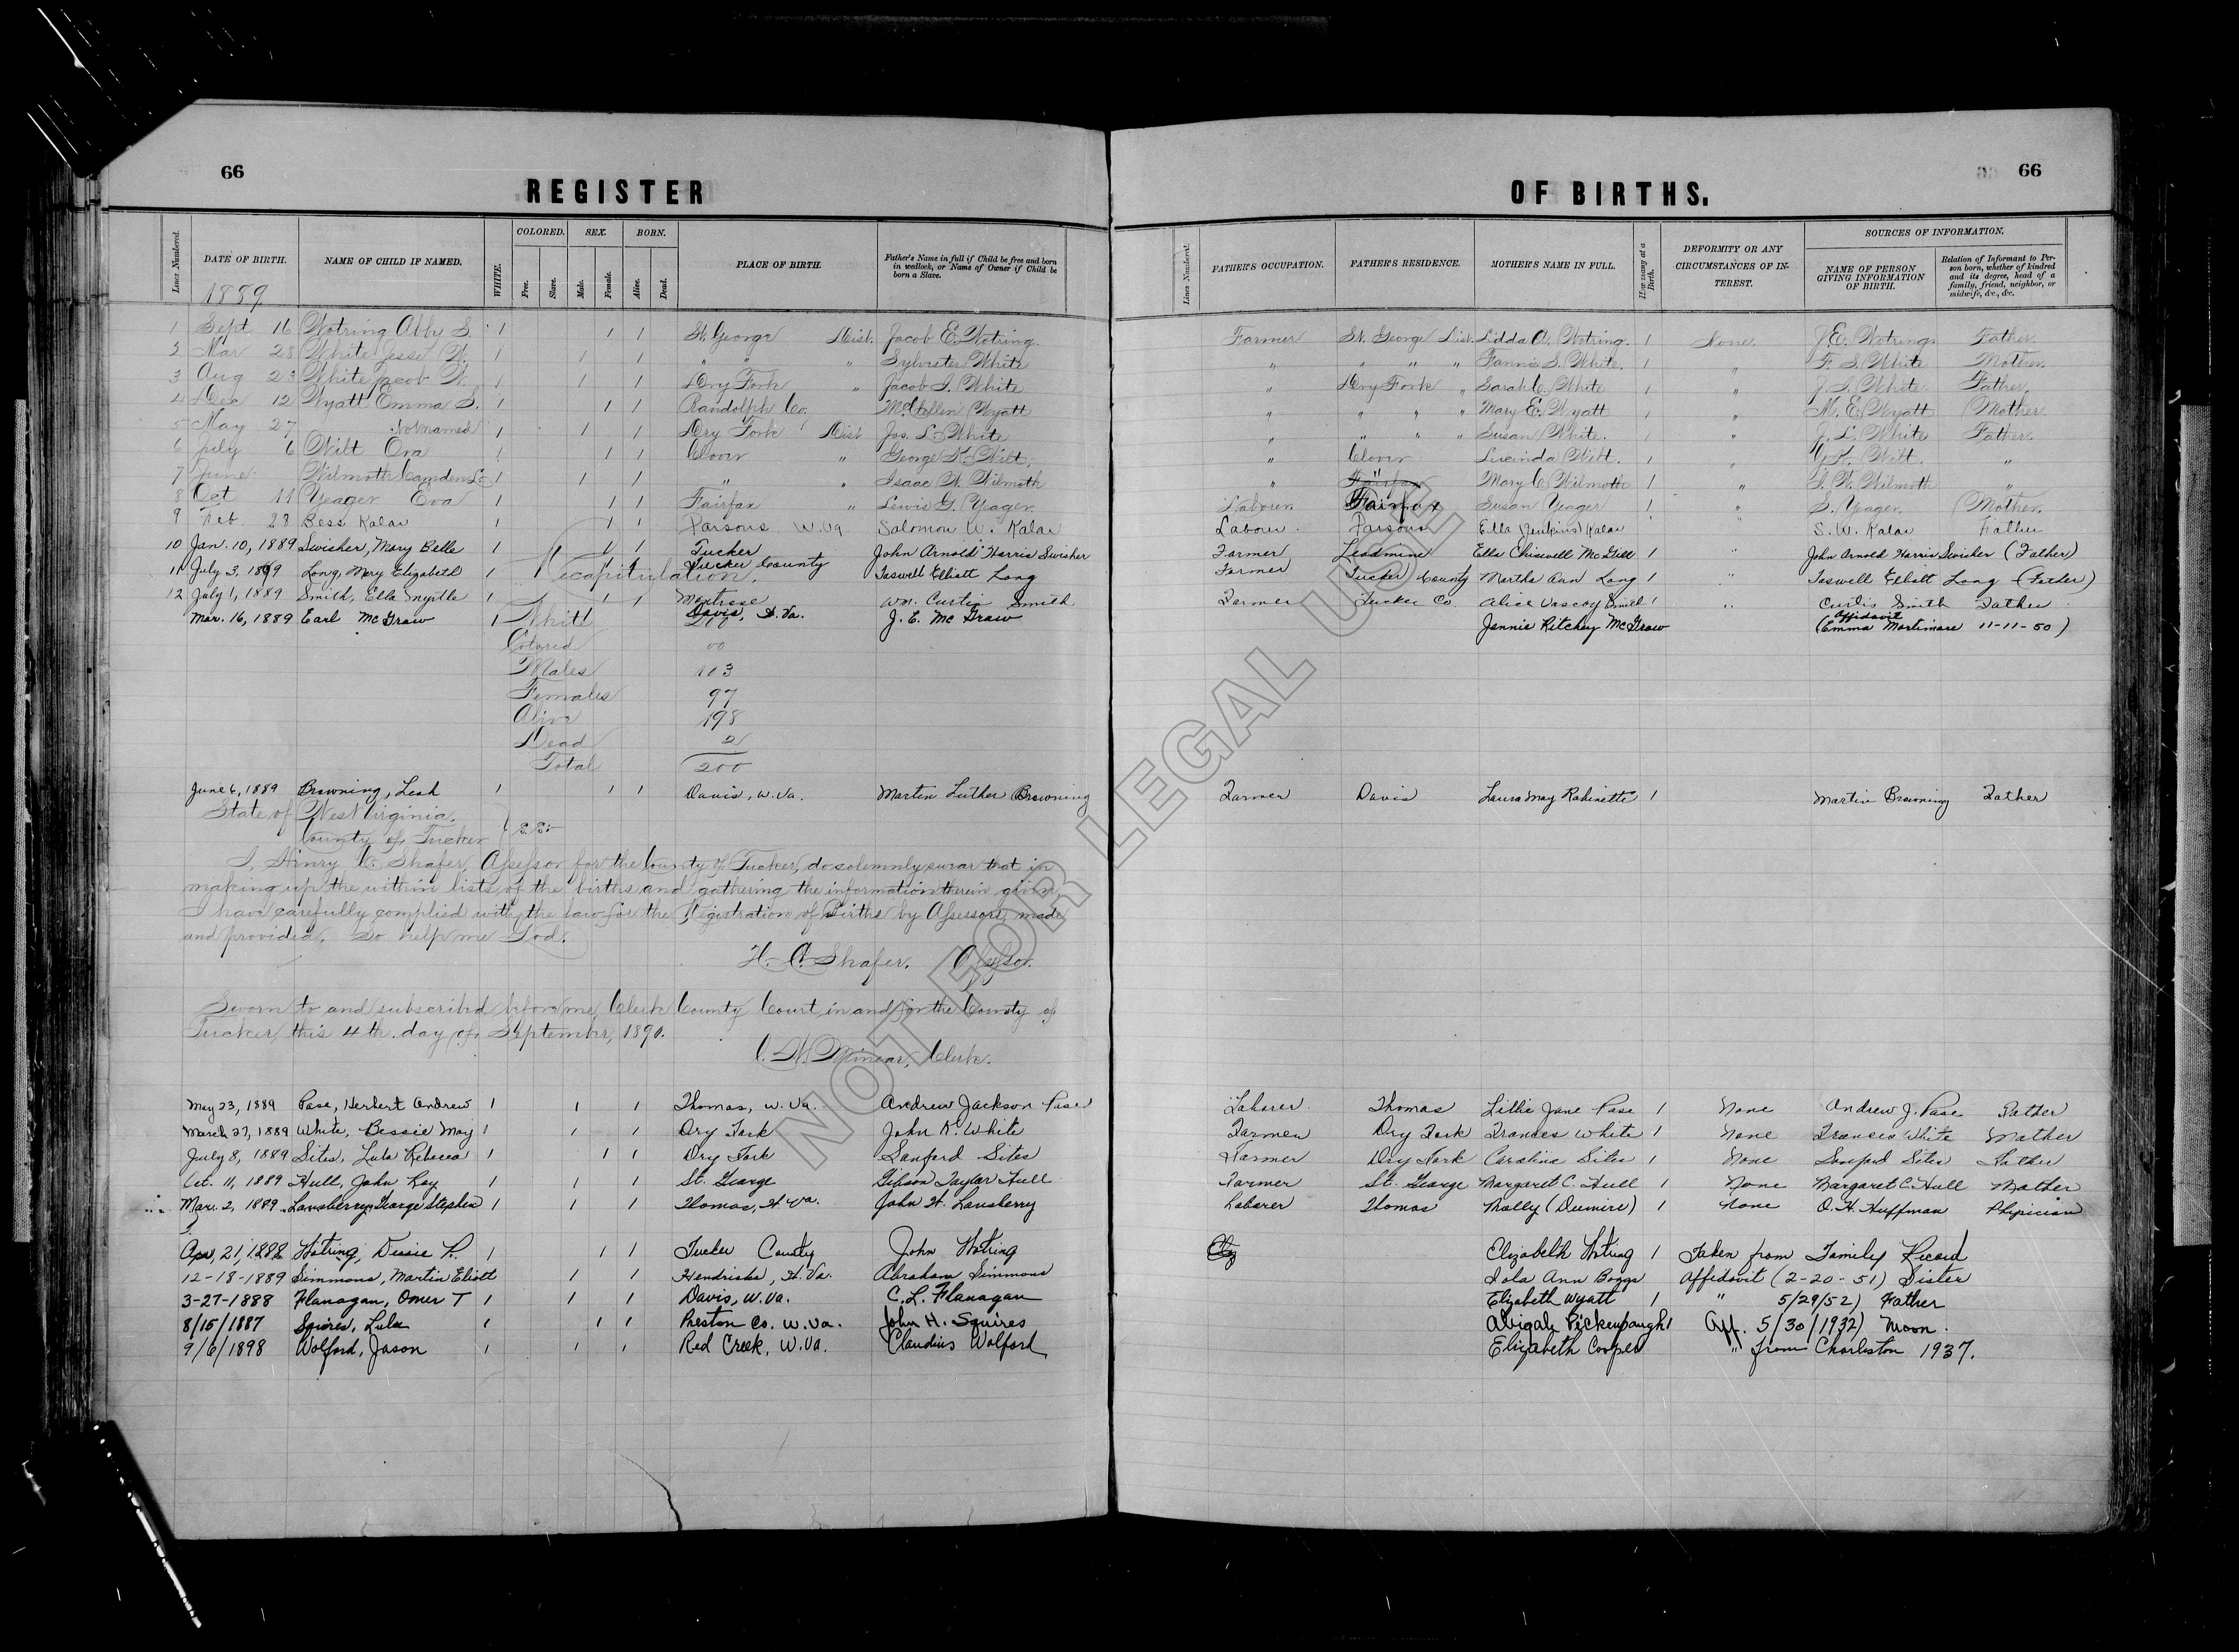 66
REGISTER
OF BIRTHS.
66
Lines Numbered. DATE OF BIRTH. NAME OF CHILD IF NAMED. WHITE. COLORED. Free. Slave. SEX. Male. Female. BORN. Alive. Dead. PLACE OF BIRTH. Father's Name in full if Child be free and born in wedlock, or Name of Owner if Child be born a Slave.
Lines Numbered. FATHER'S OCCUPATION. FATHER'S RESIDENCE. MOTHER'S NAME IN FULL. How many at a Birth. DEFORMITY OR ANY CIRCUMSTANCES OF INTEREST. SOURCES OF INFORMATION. NAME OF PERSON GIVING INFORMATION OF BIRTH. Relation of Informant to Person born, whether of kindred and its degree, head of a family, friend, neighbor, or midwife, &c., &c.
1889
1 Sept 16 Wotring Abby S. 1 1 1 St. George Dist. Jacob E. Wotring. Farmer St. George Dist. Lidda A. Wotring. 1 None. J E. Wotring Father.
2 Mar 28 White Jesse W. 1 1 1 " " Sylvester White " " " " Fannie S. White. 1 " F. S. White Mother.
3 Aug 23 White Jacob W. 1 1 1 Dry Fork " Jacob S. White " Dry Fork " Sarah C. White 1 " J. S. White Father.
4 Dec 12 Wyatt Emma S. 1 1 1 Randolph Co. McClellen Wyatt " " " " Mary E. Wyatt 1 " M. E. Wyatt Mother.
5 May 27 Not named 1 1 1 Dry Fork Dist Jos. L. White " " " " Susan White. 1 " J. L. White Father.
6 July 6 Wilt Ora 1 1 1 Clover " George K. Wilt. " Clover Lucinda Wilt. 1 " G. K. Wilt. "
7 June Wilmoth Camden L. 1 1 1 " " Isaac W. Wilmoth " Fairfax Mary C. Wilmoth 1 " I. W. Wilmoth "
8 Oct 11 Yeager Eva 1 1 1 Fairfax " Lewis G. Yeager. Laborer. Fairfax Susan Yeager 1 " S. Yeager. Mother.
9 Feb 28 Bess Kalar 1 1 1 Parsons W. Va Salomon W. Kalar Laborer. Parsons Ella (Jenkins) Kalar " S. W. Kalar Father
10 Jan. 10, 1889 Swisher, Mary Belle 1 1 1 Tucker John Arnold Harris Swisher Farmer Leadmine Ella Chiswell McGill 1 " John Arnold Harris Swisher (Father)
11 July 3, 1889 Long, Mary Elizabeth 1 1 1 Tucker County Taswell Elliott Long Farmer Tucker County Martha Ann Long 1 " Taswell Elliott Long (Father)
Recapitulation.
12 July 1, 1889 Smith, Ella Myrtle 1 1 1 Wm. Curtis Smith Farmer Tucker Co Alice Smith 1 " Curtis Smith Father
Mar. 16, 1889 Earl McGraw 1 Davis, W. Va. J. E. McGraw Jennie Ritchey McGraw Affidavit (Emma Mortimore 11-11-50)
Whitt 200
Colored 00
Males 103
Females 97
Alive 198
Dead 2
Total 200
June 6, 1889 Browning, Leah 1 1 1 Davis, W. Va. Martin Luther Browning Farmer Davis Laura May Rabinette 1 Martin Browning Father
State of West Virginia.
County of Tucker } S.S.:
I, Henry C. Shafer, Assessor for the County of Tucker, do solemnly swear that in
making up the within lists of the births and gathering the information therein given
I have carefully complied with the law for the Registration of Births by Assessors, made
and provided. So help me God.
H. C. Shafer. Assessor.
Sworn to and subscribed before me, Clerk County Court in and for the County of
Tucker, this 4th. day of September, 1890.
Minear, Clerk.
May 23, 1889 Pase, Herbert Andrew 1 1 1 Thomas, W. Va. Andrew Jackson Pase Laborer. Thomas Lillie Jane Pase 1 None Andrew J. Pase Father
March 27, 1889 White, Bessie May 1 1 1 Dry Fork John K. White Farmer Dry Fork Frances White 1 None Frances White Mother
July 8, 1889 Sites, Lula Rebecca 1 1 1 Dry Fork Sanford Sites Farmer Dry Fork Caroline Sites 1 None Sanford Sites Father
Oct. 11, 1889 Hull, John Ray 1 1 1 St. George Gibson Taylor Hull Farmer St. George Margaret C. Hull 1 None Margaret C. Hull Mother
Mar. 2, 1889 Lansberry, George Stephen 1 1 1 Thomas, W. Va. John W. Lansberry Laborer Thomas Molly (Dumire) 1 None O. H. Huffman Physician
Apr, 21, 1888 Wotring, Dessie P. 1 1 1 Tucker County John Wotring Elizabeth Wotring 1 Taken from Family Record
12-18-1889 Simmons, Martin Eliott 1 1 Hendricks, W. Va. Abraham Simmons Iola Ann Boggs Affidavit (2-20-51) Sister
3-27-1888 Flanagan, Omer T 1 1 1 Davis, W. Va. C. L. Flanagan Elizabeth Wyatt 1 " 5/29/52) Father
8/15/1887 Squires, Lula 1 1 1 Preston Co. W. Va. John H. Squires Abigale Pickenpaugh 1 Aff. 5/30/1932) Moon.
9/6/1898 Wolford, Jason 1 1 1 Red Creek, W. Va. Claudius Wolford Elizabeth Cooper " from Charleston 1937.
NOT FOR LEGAL USE